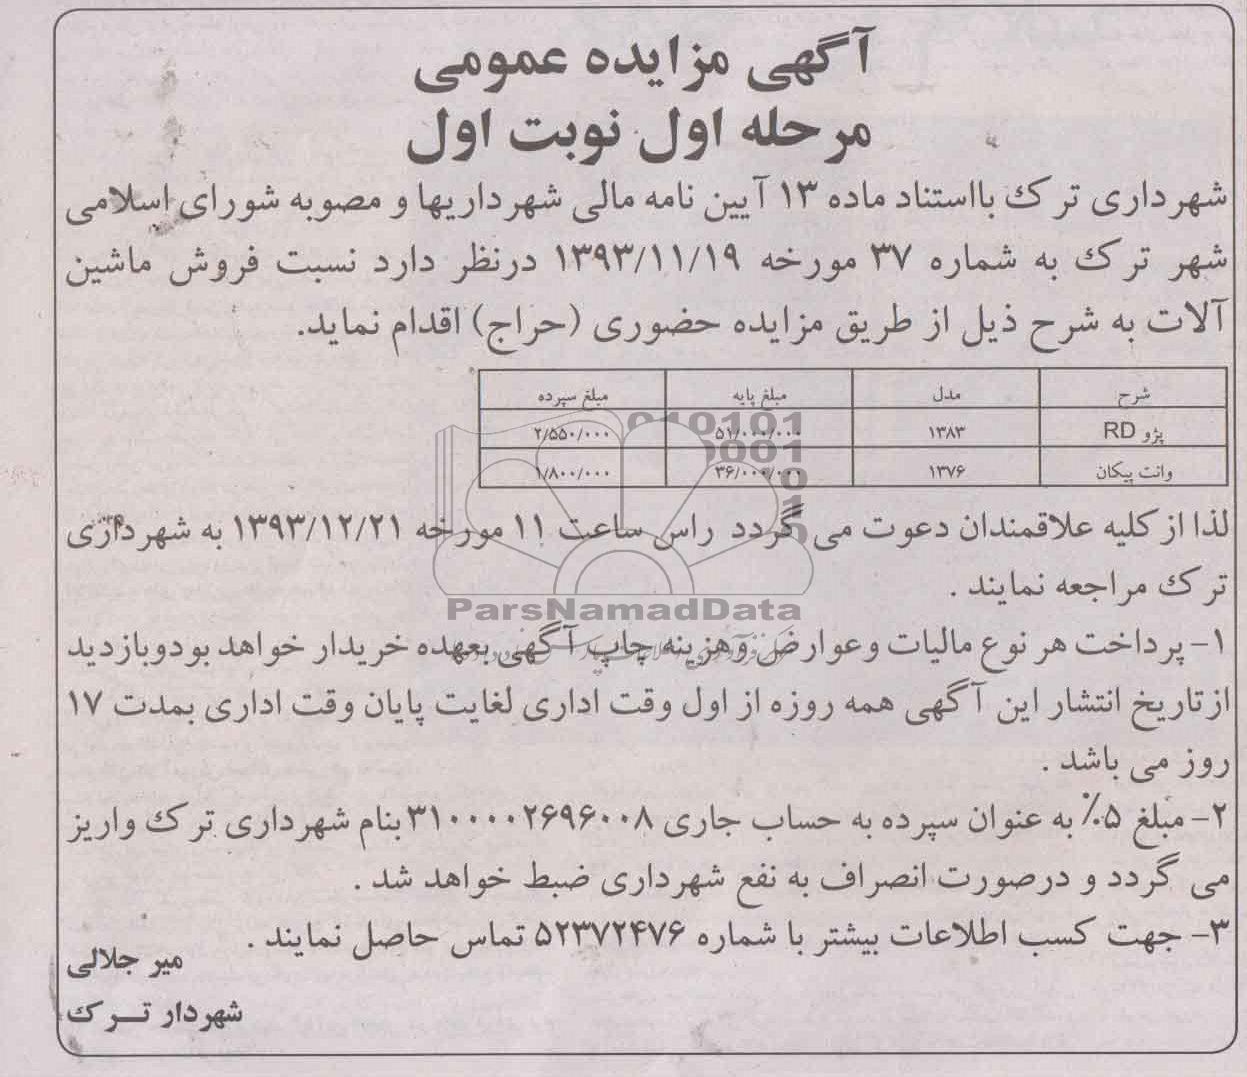 آگهی مزایده عمومی
مرحله اول نوبت اول
شهرداری ترک بااستناد ماده ۱۳ آیین نامه مالی شهرداریها و مصوبه شورای اسلامی
شهر ترک به شماره ۳۷ مورخه ۱۳۹۳/۱۱/۱۹ درنظر دارد نسبت فروش ماشین
آلات به شرح ذیل از طریق مزایده حضوری (حراج) اقدام نماید.
شرح مدل مبلغ پایه مبلغ سپرده
پژو RD ۱۳۸۳ ۵۱/۰۰۰/۰۰۰ ۲/۵۵۰/۰۰۰
وانت پیکان ۱۳۷۶ ۳۶/۰۰۰/۰۰۰ ۱/۸۰۰/۰۰۰
لذا از کلیه علاقمندان دعوت می گردد راس ساعت ۱۱ مورخه ۱۳۹۳/۱۲/۲۱ به شهرداری
ترک مراجعه نمایند .
ParsNamadData
۱- پرداخت هر نوع مالیات وعوارض وهزینه چاپ آگهی بعهده خریدار خواهد بودوبازدید
ازتاریخ انتشار این آگهی همه روزه از اول وقت اداری لغایت پایان وقت اداری بمدت ۱۷
روز می باشد .
۲- مبلغ ۵٪ به عنوان سپرده به حساب جاری ۳۱۰۰۰۰۲۶۹۶۰۰۸ بنام شهرداری ترک واریز
می گردد و درصورت انصراف به نفع شهرداری ضبط خواهد شد .
۳- جهت کسب اطلاعات بیشتر با شماره ۵۲۳۷۲۴۷۶ تماس حاصل نمایند .
میر جلالی
شهردار تـــرک